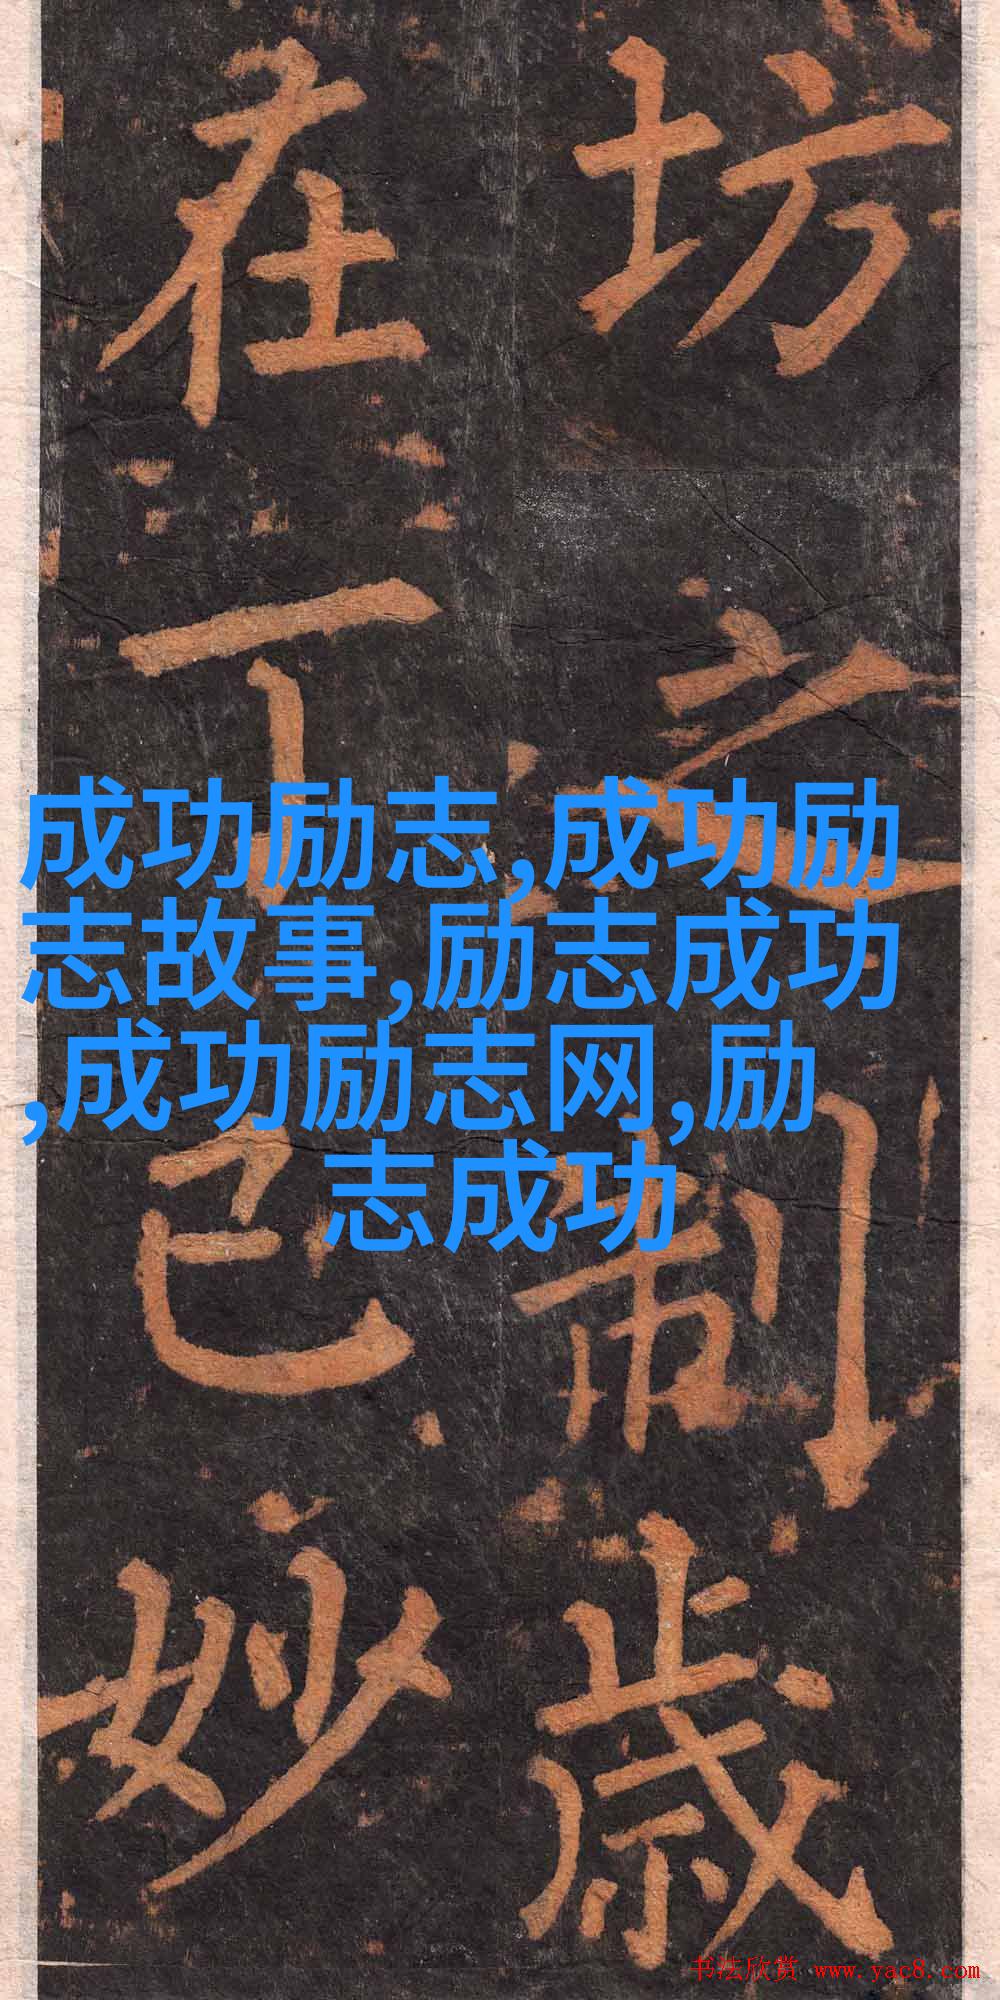 坊之制歲
在丁巳妙
成功励志,成功励
志故事,励志成功
,成功励志网,励
志成功
书法欣赏 www.yac8.com